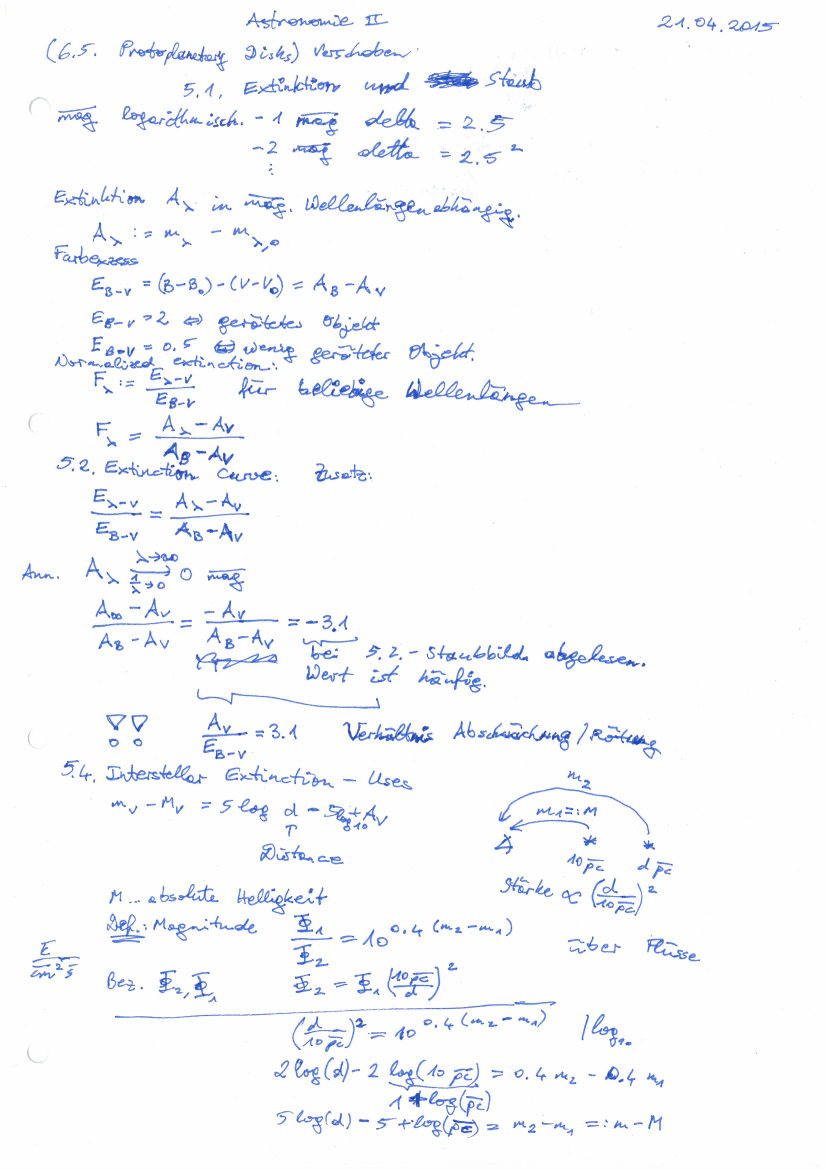 Astronomie II
21.04.2015
(6.5. Protoplanetary Disks) verschoben.
5.1. Extinktion und Staub
mag logarithmisch. -1 mag delta = 2.5
-2 mag delta = 2.5²
⋮
Extinktion A_λ in mag. Wellenlängenabhängig.
A_λ := m_λ - m_λ,0
Farbexzess
E_B-V = (B-B₀) - (V-V₀) = A_B - A_V
E_B-V = 2 ⇔ gerötetes Objekt
E_B-V = 0.5 ⇔ wenig geröteter Objekt.
Normalized extinction:
F_λ := E_λ-V / E_B-V für beliebige Wellenlängen
F_λ = (A_λ - A_V) / (A_B - A_V)
5.2. Extinction Curve: Zusatz:
E_λ-V / E_B-V = (A_λ - A_V) / (A_B - A_V)
Ann. A_λ →(λ→∞, 1/λ→0) 0 mag
(A_∞ - A_V) / (A_B - A_V) = -A_V / (A_B - A_V) = -3.1
bei 5.2.-Staubbild abgelesen.
Wert ist häufig.
!! A_V / E_B-V = 3.1 Verhältnis Abschwächung / Rötung
5.4. Interstellar Extinction - Uses
m_V - M_V = 5 log d - 5 log 10 + A_V
↑
Distance
m₂
m₁ =: M
10 pc d pc
Stärke ∝ (d / 10 pc)²
M ... absolute Helligkeit
Def.: Magnitude Φ₁ / Φ₂ = 10^0.4 (m₂-m₁) über Flüsse
E / cm² s
Bez. Φ₂, Φ₁ Φ₂ = Φ₁ (10 pc / d)²
(d / 10 pc)² = 10^0.4 (m₂-m₁) / log₁₀
2 log(d) - 2 log(10 pc) = 0.4 m₂ - 0.4 m₁
1 + log(pc)
5 log(d) - 5 + log(pc) = m₂ - m₁ =: m - M